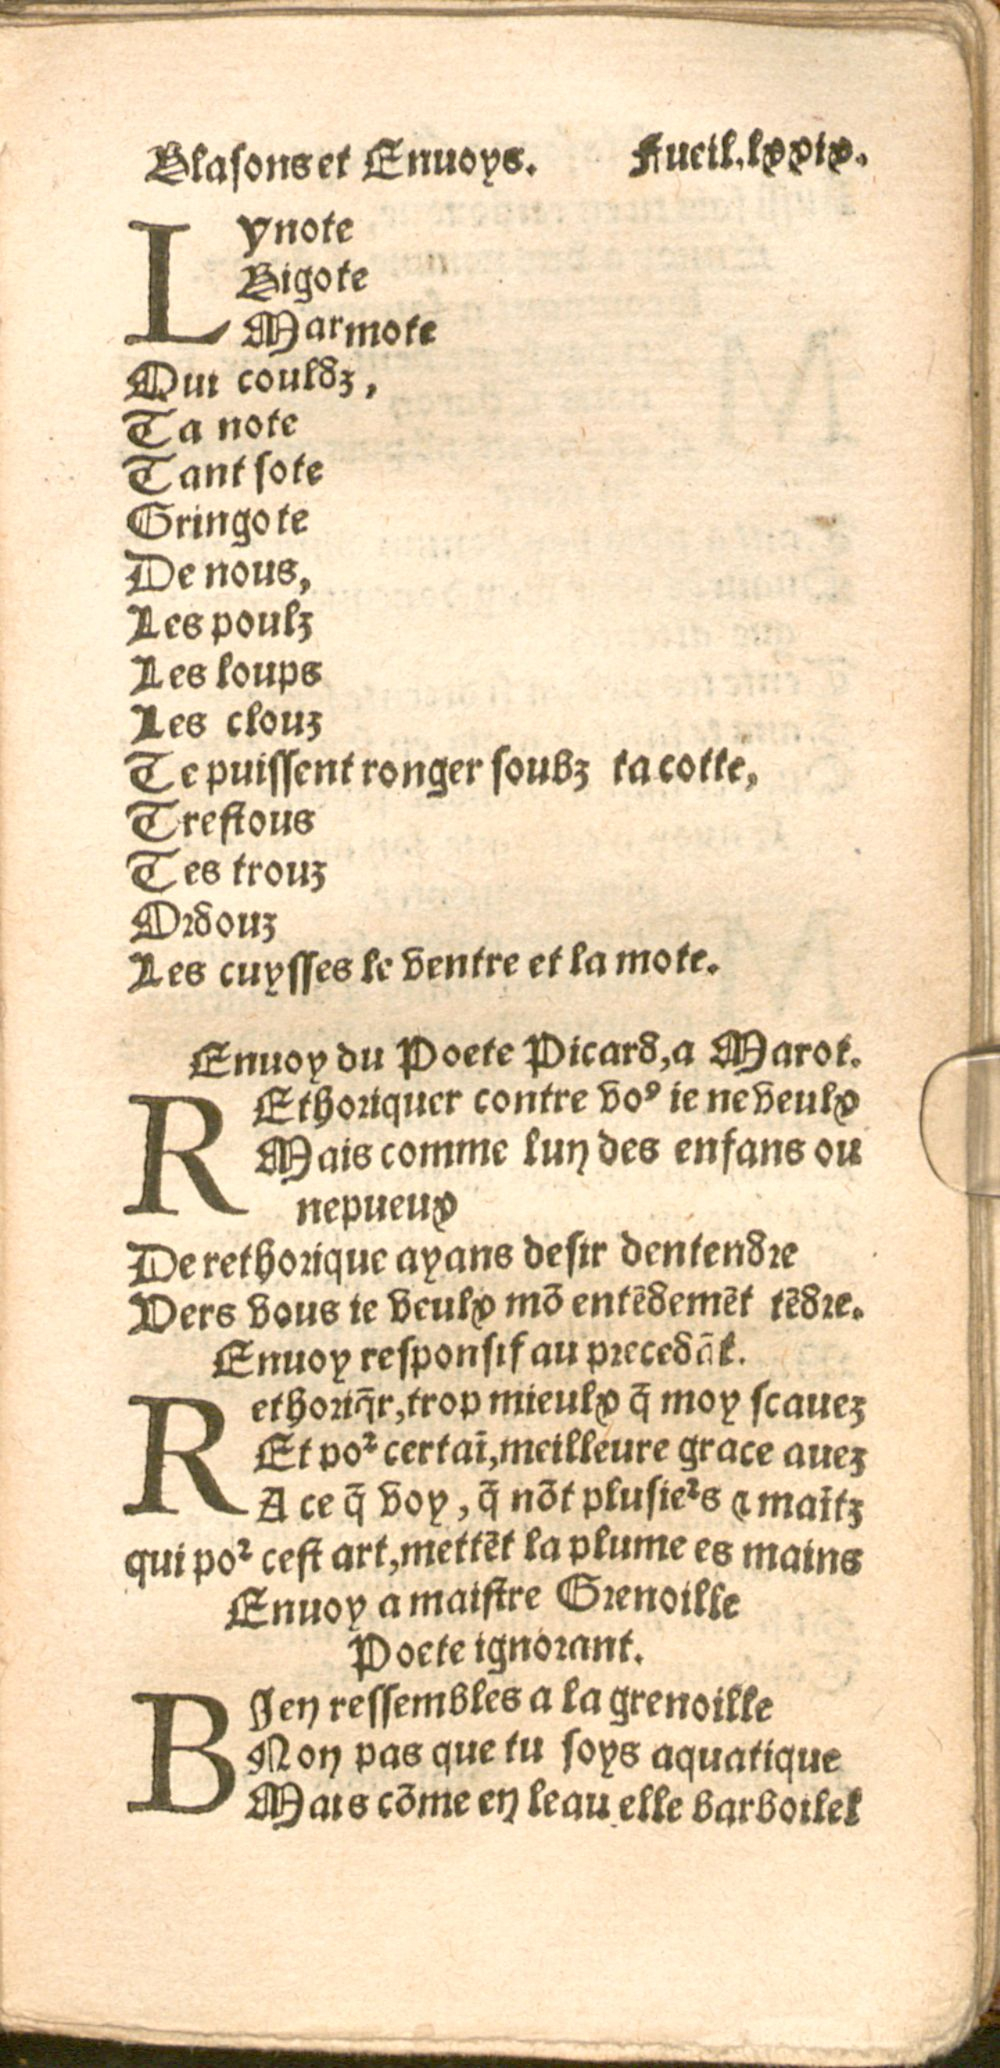 Blasons et Enuoys. Fueil.lxxix.
Lynote
Bigote
Marmote
Qui couldz,
Ta note
Tant sote
Gringote
De nous,
Les poulz
Les loups
Les clouz
Te puissent ronger soubz ta cotte,
Trestous
Tes trouz
Ordouz
Les cuysses le ventre et la mote.
Enuoy du Poete Picard, a Marot.
REthoriquer contre voꝰ ie ne veulx
Mais comme lun des enfans ou
nepueux
De rethorique ayans desir dentendre
Vers vous ie veulx mõ entẽdemẽt tẽdre.
Enuoy responsif au precedãt.
Rethoriq̃r, trop mieulx q̃ moy scauez
Et poꝛ certaĩ, meilleure grace auez
A ce q̃ voy, q̃ nõt plusieꝛs ⁊ maĩtz
qui poꝛ cest art, mettẽt la plume es mains
Enuoy a maistre Grenoille
Poete ignorant.
BIen ressembles a la grenoille
Non pas que tu soys aquatique
Mais cõme en leau elle barboilel